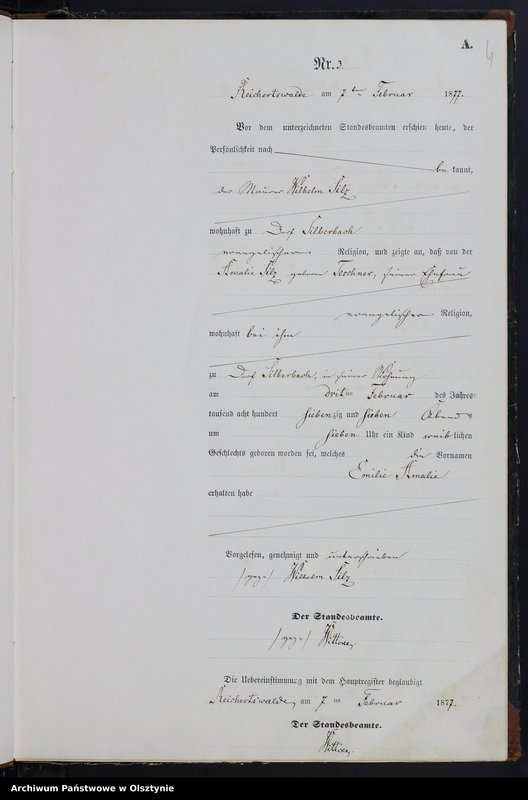 A.
4
Nr. 3.
Reichertswalde am 7ten Februar 1877.
Vor dem unterzeichneten Standesbeamten erschien heute, der
Persönlichkeit nach
be kannt,
der Maurer Wilhelm Silz
wohnhaft zu Dorf Silberbach
evangelischer Religion, und zeigte an, daß von der
Amalie Silz geborne Teschner, seiner Ehefrau
evangelischer Religion,
wohnhaft bei ihm
zu Dorf Silberbach, in seiner Wohnung
am dritten Februar des Jahres
tausend acht hundert siebenzig und sieben Abends
um sieben Uhr ein Kind weiblichen
Geschlechts geboren worden sei, welches die Vornamen
Emilie Amalie
erhalten habe
Vorgelesen, genehmigt und unterschrieben
/gez/ Wilhelm Silz
Der Standesbeamte.
/gez/
Die Uebereinstimmung mit dem Hauptregister beglaubigt
Reichertswalde, am 7ten Februar 1877.
Der Standesbeamte.
Archiwum Państwowe w Olsztynie